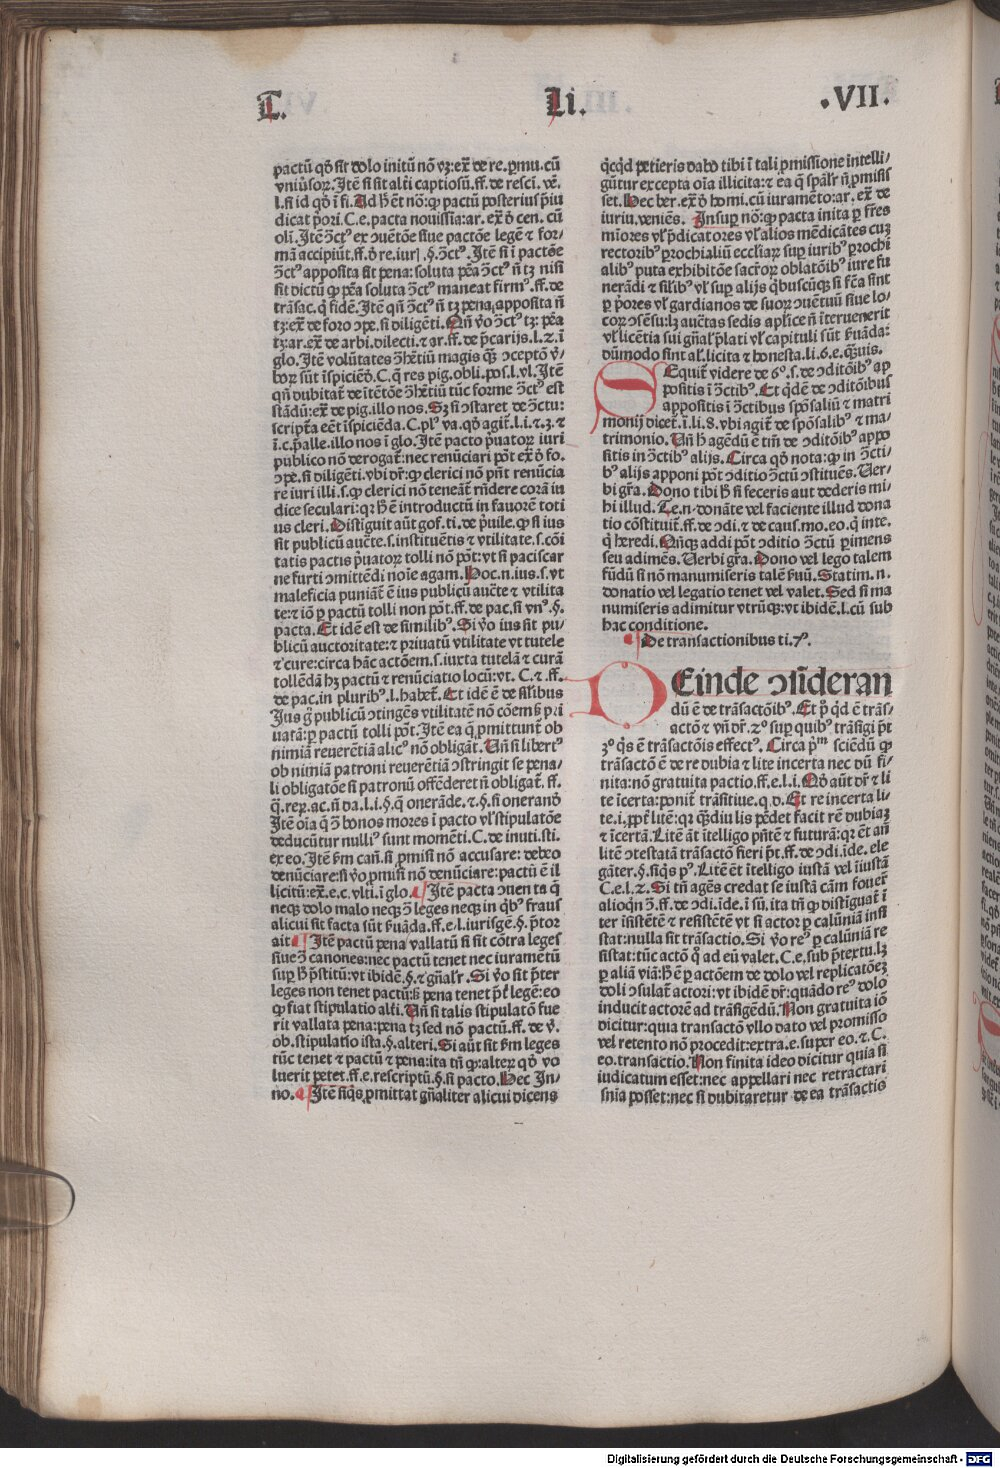 T. Li. .VII.
pactū qđ sit dolo initū nō vꝫ:ex̄ de re.ꝑmu.cū
vniūsoꝝ.Itē si sit alt̄i captiosū.ff.de resci.vē.
l.si id qđ ī fi.Ad h̄ ēt nō:ꝙ pactū posterius p̄iu
dicat p̄ori.C.e.pacta nouissīa:ar.ex̄ đ cen.cū
oli.Itē ɔ̄ctꝰ ex ɔuētōe siue pactōe legē ⁊ for-
mā accipiūt.ff.đ re.iurꝭ.§.ɔ̄ctꝰ.Itē si ī pactōe
ɔ̄ctꝰ apposita sit pena:soluta pēa ɔ̄ctꝰ n̄ tꝫ nisi
sit dictū ꝙ pēa soluta ɔ̄ctꝰ maneat firmꝰ.ff.de
trāsac.q̄ fidē.Itē qn̄ ɔ̄ctꝰ n̄ tꝫ pena apposita n̄
tꝫ:ex̄ de foro ɔpe.si diligēti.Qn̄ v̄o ɔ̄ctꝰ tꝫ pēa
tꝫ:ar.ex̄ de arbi.dilecti.⁊ ar.ff.de p̄carijs.l.2.ī
glo.Itē volūtates ɔ̄hētiū magis qꝫ ɔceptō v̄-
boꝝ sūt īspiciēđ.C.q̄ res pig.obli.pos.l.vl.Itē
qn̄ dubitat̄ de ītētōe ɔ̄hētiū tūc forme ɔ̄ctꝰ est
stādū:ex̄ de pig.illo nos.Sꝫ si ɔstaret de ɔ̄ctu:
scripta eēt īspiciēda.C.plꝰ va.qđ agit̄.l.i.2.3.⁊
ī.c.p̄alle.illo nos ī glo.Itē pacto p̄uatoꝝ iuri
publico nō derogat̄:nec renūciari pōt ex̄ đ fo.
ɔpe.si diligēti.vbi dr̄:ꝙ clerici nō pn̄t renūcia
re iuri illi.s.ꝙ clerici nō teneāt̄ rn̄dere corā iu
dice seculari:qꝛ h̄ ē introductū in fauorē toti
us cleri.Distiguit aūt gof.ti.de p̄uile.ꝙ si ius
sit publicū aucte.s.instituētis ⁊ vtilitate.s.cōi
tatis pactis p̄uatoꝝ tolli nō pōt:vt si paciscar
ne furti ɔmittēdi noīe agam.Hoc.n.ius.s.vt
maleficia puniāt̄ ē ius publicū aucte ⁊ vtilita
te:⁊ iō ꝑ pactū tolli non pōt.ff.de pac.si vnꝰ.§.
pacta.Et idē est de similibꝰ.Si v̄o ius sit pu-
blicū auctoritate:⁊ priuatū vtilitate vt tutele
⁊ cure:circa hāc actōem.s.iuxta tutelā ⁊ curā
tollēdā hꝫ pactū ⁊ renūciatio locū:vt.C.⁊.ff.
de pac.in pluribꝰ.l.habet̄.Et idē ē de sil'ibus
Jus g̊ publicū ɔtingēs vtilitatē nō cōem sꝫ pri
uatā:ꝑ pactū tolli pōt.Itē ea q̄ ꝓmittunt̄ ob
nimiā reuerētiā alicꝰ nō obligāt.Vn̄ si libertꝰ
ob nimiā patroni reuerētiā ɔstringit se pena-
li obligatōe si patronū offēderet n̄ obligat̄.ff.
q̄.reꝝ.ac.n̄ da.l.i.§.q̄ onerāde.⁊.§.si onerandō
Itē oīa q̄ ɔ̄ bonos mores ī pacto vl' stipulatōe
deducūtur nulliꝰ sunt momēti.C.de inuti.sti.
ex eo.Itē sm can̄.si ꝓmisi nō accusare: debeo
denūciare:si v̄o ꝓmisi nō denūciare:pactū ē il
licitū:ex̄.e.c.vlti.ī glo.Itē pacta ɔuenta q̄
neqꝫ dolo malo neqꝫ ɔ̄ leges neqꝫ in q̄bꝰ fraus
alicui sit facta sūt s̄uāda.ff.e.l.iurisgē.§.p̄tor
ait Itē pactū pena vallatū si sit cōtra leges
siue ɔ̄ canones:nec pactū tenet nec iuramētū
suꝑ h̄ p̄stitū:vt ibidē.§.⁊ gn̄alr̄.Si v̄o sit p̄ter
leges non tenet pactū:s̄ pena tenet p̄t legē:eo
ꝙ fiat stipulatio alt̄i.Vn̄ si talis stipulatō fue
rit vallata pena:pena tꝫ sed nō pactū.ff.de v̄.
ob.stipulatio ista.§.alteri.Si aūt sit sm leges
tūc tenet ⁊ pactū ⁊ pena:ita tn̄ ꝙ:alter qđ vo
luerit petet.ff.e.rescriptū.§.si pacto.Hec In-
no.Itē siq̄s ꝓmittat gn̄aliter alicui dicens
qcqd petieris dabo tibi ī tali ꝓmissione intelli-
gūtur excepta oīa illicita:⁊ ea q̄ spālr̄ n̄ ꝓmisis
set.Hec ber.ex̄ đ homi.cū iuramēto:ar.ex̄ de
iuriu.veniēs. Insuꝑ nō:ꝙ pacta inita ꝑ fr̄es
mīores vl' p̄dicatores vl' alios mēdicātes cuꝫ
rectoribꝰ ꝑrochialiū eccl'iaꝝ suꝑ iuribꝰ ꝑrochi
alibꝰ puta exhibitōe sacr̄oꝝ oblatōibꝰ iure fu
nerādi ⁊ sil'ibꝰ vl' suꝑ alijs q̄buscūqꝫ si fc̄a sint
ꝑ p̄ores vl' gardianos de suoꝝ ɔuētuū siue lo-
coꝝ ɔsēsu:lꝫ auctas sedis apl'ice n̄ īteruenerit
vl' licētia sui gn̄al' p̄lati vl' capituli sūt s̄uāda:
dūmodo sint al'.licita ⁊ honesta.li.6.e.q̄ꝫuis.
SEquit̄ videre de 6°.s.de ɔditōibꝰ ap
positis ī ɔ̄ctibꝰ.Et q̄dē de ɔditōibus
appositis ī ɔ̄ctibus spōsaliū ⁊ matri
monij dicet̄.ī.li.8.vbi agit̄ de spōsalibꝰ ⁊ ma-
trimonio.Vn̄ h̄ agēdū ē tm̄ de ɔditōibꝰ appo
sitis in ɔ̄ctibꝰ alijs.Circa qđ nota:ꝙ in ɔ̄cti-
bꝰ alijs apponi pōt ɔditio ɔ̄ctū ɔstituēs.Uer-
bi gr̄a.Dono tibi h̄ si feceris aut dederis mi-
hi illud.Te.n.donāte vel faciente illud dona
tio cōstituit̄.ff.de ɔdi.⁊ de caus.mo.eo.q̄ inte.
q̄ heredi.Qn̄qꝫ addi pōt ɔditio ɔ̄ctū ꝑimens
seu adimēs.Uerbi gr̄a.Dono vel lego talem
fūdū si nō manumiseris talē s̄uū.Statim.n.
donatio vel legatio tenet vel valet.Sed si ma
numiseris adimitur vtrūqꝫ:vt ibidē.l.cū sub
hac conditione.
De transactionibus ti.7ꝰ.
DEinde ɔsideran
dū ē de trāsactōibꝰ.Et p̄ qd ē trās-
actō ⁊ vn̄ dr̄.2° suꝑ quibꝰ trāsigi p̄t
3° q̄s ē trāsactōis effectꝰ.Circa p̄m sciēdū ꝙ
trāsactō ē de re dubia ⁊ lite incerta nec dū fi-
nita:nō gratuita pactio.ff.e.l.i.Qđ aūt dr̄ ⁊ li
te īcerta:ponit̄ trāsitiue.q.d.Et re incerta li-
te.i.ꝓpt̄ litē:qꝛ qꝫdiu lis pēdet facit rē dubiaꝫ
⁊ īcertā.Litē āt ītelligo pn̄tē ⁊ futurā:qꝛ ēt an̄
litē ɔtestatā trāsactō fieri p̄t.ff.de ɔdi.īde.ele
gāter.§.siq̄s pꝰ.Litē ēt ītelligo iustā vel īiustā
C.e.l.2.Si tn̄ agēs credat se iustā cām fouer̄
alioqn̄ ɔ̄.ff.de ɔdi.īde.ī sū.ita tn̄ ꝙ distiguat̄ ī
ter īsistētē ⁊ resistētē vt si actor ꝑ calūniā insi
stat:nulla sit trāsactio.Si v̄o reꝰ ꝑ calūniā re
sistat:tūc actō q̊ ad eū valet.C.e.sub p̄textu.lꝫ
ꝑ aliā viā:h̄ ē ꝑ actōem de dolo vel replicatōeꝫ
doli ɔsulat̄ actori:vt ibidē dr̄:quādo reꝰ dolo
inducit actorē ad trāsigēdū.Non gratuita iō
dicitur:quia transactō vllo dato vel promisso
vel retento nō procedit:extra.e.super eo.⁊.C.
eo.transactio.Non finita ideo dicitur quia si
iudicatum esset:nec appellari nec retractari
sn̄ia posset:nec si dubitaretur de ea trāsactis
Digitalisierung gefördert durch die Deutsche Forschungsgemeinschaft - DFG